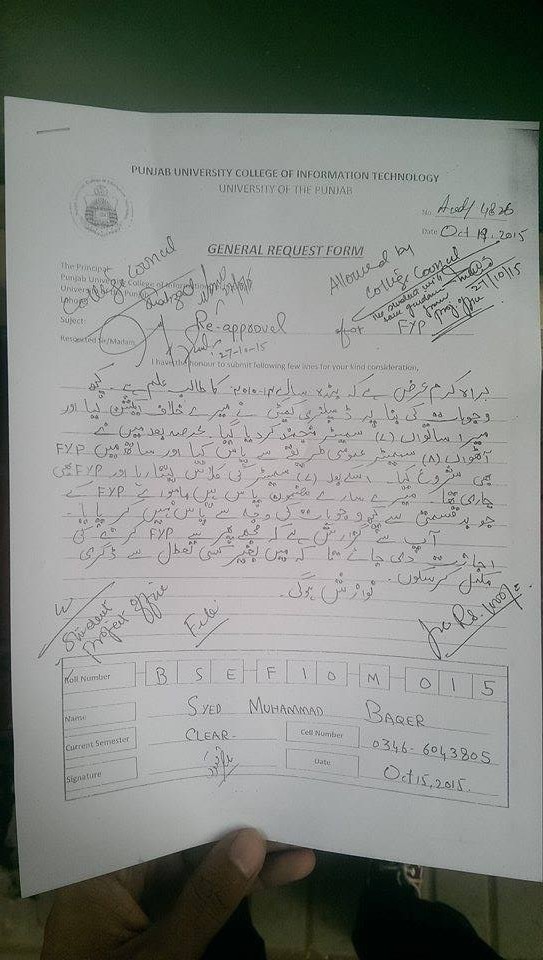 PUNJAB UNIVERSITY COLLEGE OF INFORMATION TECHNOLOGY
UNIVERSITY OF THE PUNJAB
No. Acad/4826
Date Oct 19, 2015
GENERAL REQUEST FORM
The Principal
Punjab University College of Information
College Council
Allowed by
College Council
27/10/15
Suject: Re-approval for FYP
Resected Sir/Madam,
27-10-15
I have the honour to submit following few lines for your kind consideration,
براہ کرم عرض ہے کہ بندہ سال 14-2010 کا طالب علم ہے۔ کچھ
وجوہات کی بنا پر ڈسپلنری کمیٹی نے میرے خلاف ایکشن لیا اور
میرا ساتواں (7) سمسٹر منجمد کر دیا گیا۔ عرصہ بعد میں نے
آٹھواں (8) سمسٹر عمومی طریقے سے پاس کیا اور ساتھ میں FYP
بھی شروع کیا۔ اسکے بعد (7) سمسٹر کی کلاس لیتا رہا اور FYP بھی
جاری تھا۔ میرے سارے مضمون پاس ہیں ماسوائے FYP کے
جو بدقسمتی سے کچھ وجوہات کی وجہ سے پاس نہیں کر پایا۔
آپ سے گزارش ہے کہ مجھے پھر سے FYP کرنے کی
اجازت دی جائے تا کہ میں بغیر کسی تعطل سے ڈگری
مکمل کر سکوں۔
نوازش ہوگی۔
Student
Project Office
File
Roll Number B S E F 1 0 M 0 1 5
Name SYED MUHAMMAD BAQER
Current Semester CLEAR- Cell Number 0346-6043805
Signature Date Oct 15, 2015.